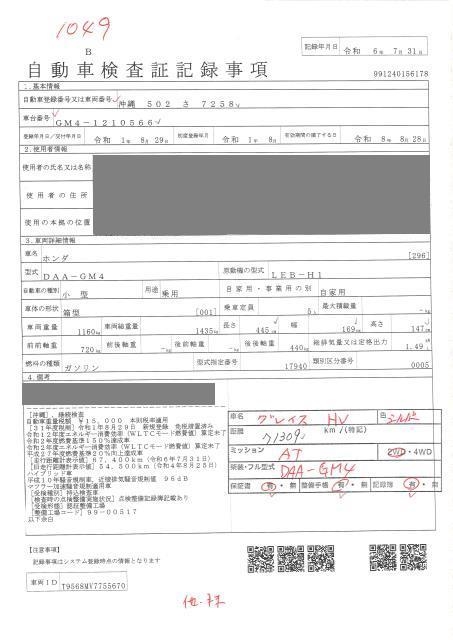 1049
B
記録年月日 令和 6年 7月 31日
自動車検査証記録事項
991240156178
1.基本情報
自動車登録番号又は車両番号 沖縄 502 さ 7258
車台番号 GM4-1210566
登録年月日/交付年月日 令和 1年 8月 29日 初度登録年月 令和 1年 8月 有効期間の満了する日 令和 8年 8月 28日
2.使用者情報
使用者の氏名又は名称
使用者の住所
使用の本拠の位置
3.車両詳細情報
車名 ホンダ [296]
型式 DAA-GM4 原動機の型式 LEB-H1
自動車の種別 小型 用途 乗用 自家用・事業用の別 自家用
車体の形状 箱型 [001] 乗車定員 5人 最大積載量 -kg
車両重量 1160kg 車両総重量 1435kg 長さ 445cm 幅 169cm 高さ 147cm
前前軸重 720kg 前後軸重 -kg 後前軸重 -kg 後後軸重 440kg 総排気量又は定格出力 1.49L
燃料の種類 ガソリン 型式指定番号 17940 類別区分番号 0005
4.備考
[沖縄],継続検査
自動車重量税額 ¥15,000 本則税率適用
[31年度税制]令和1年8月29日 新規登録 免税措置済み
令和12年度エネルギー消費効率(WLTCモード燃費値)算定未了
令和2年度燃費基準150%達成車
令和2年度エネルギー消費効率(WLTCモード燃費値)算定未了
平成27年度燃費基準達成車
[走行距離計表示値]67,400km(令和6年7月31日)
[旧走行距離計表示値]54,500km(令和4年8月25日)
ハイブリッド車
平成10年騒音規制車、近接排気騒音規制値 96dB
マフラー加速騒音規制適用車
[受検種別]持込検査車
[検査時の点検整備実施状況]点検整備記録簿記載あり
[受検形態]認証整備工場
[整備工場コード]99-00517
以下余白
車名 グレイス HV 色 シルバー
距離 71309 km/(特記)
ミッション AT 2WD・4WD
架装・フル型式 DAA-GM4
保証書 有・無 整備手帳 有・無 記録簿 有・無
[注意事項]
記録事項はシステム登録時点の情報となります
車両ID T9568MV7755670